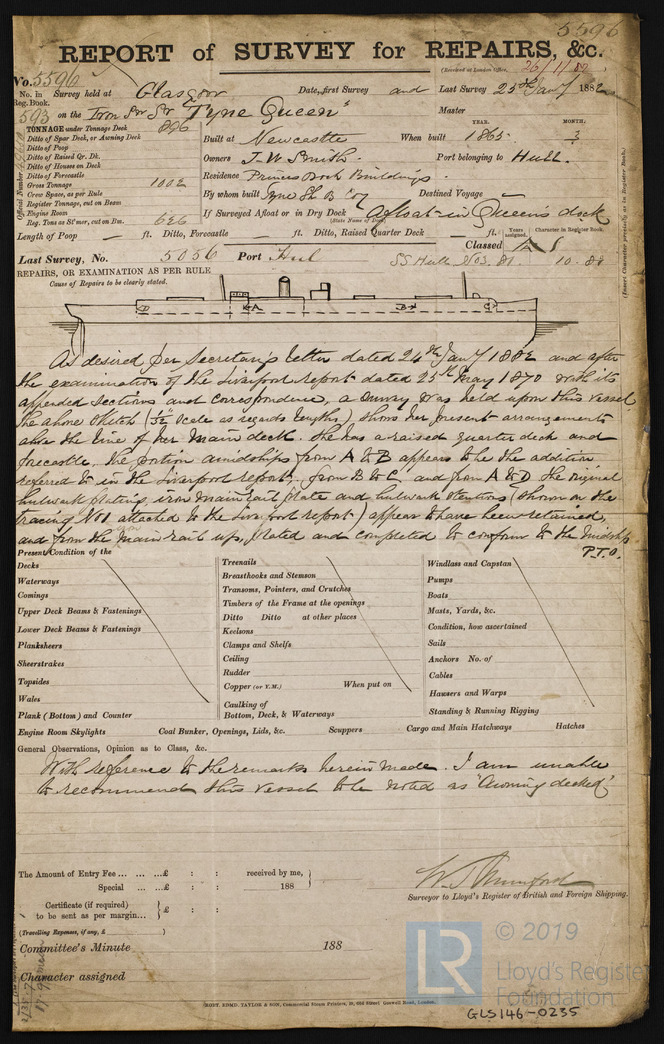 5596
REPORT of SURVEY for REPAIRS, &c.
(Received at London Office, 26/1/82
No. 5596
No. in Reg. Book. Survey held at Glasgow Date, first Survey and Last Survey 25th Jany 1882
593 on the Iron Scr Str "Tyne Queen" Master
TONNAGE under Tonnage Deck 896
Ditto of Spar Deck, or Awning Deck
Ditto of Poop
Ditto of Raised Qr. Dk.
Ditto of Houses on Deck
Ditto of Forecastle
Gross Tonnage 1002
Crew Space, as per Rule
Register Tonnage, cut on Beam
Engine Room
Reg. Tons as Stmer, cut on Bm. 626
Official Number
YEAR. MONTH.
Built at Newcastle When built 1865 3
Owners J. W. Smith Port belonging to Hull
Residence Princes Dock Buildings
By whom built Tyne Sh. B. Coy Destined Voyage —
If Surveyed Afloat or in Dry Dock Afloat in Queen's dock
(State Name of Dock)
Length of Poop — ft. Ditto, Forecastle ft. Ditto, Raised Quarter Deck — ft. Years assigned. Character in Register Book.
(Insert Character precisely as in Register Book.)
Classed
Last Survey, No. 5056 Port Hull SS Hull No3. 81. 10.82
REPAIRS, OR EXAMINATION AS PER RULE
Cause of Repairs to be clearly stated.
D A B C
As desired per Secretary's letter dated 24th Jany 1882 and after
the examination of the Liverpool report dated 25th May 1870 with its
appended sections and correspondence, a survey was held upon this vessel
the above sketch (1/32" scale as regards lengths) shows her present arrangements
above the line of her main deck. She has a raised quarter deck and
forecastle, the portion amidships from A to B appears to be the addition
referred to in the Liverpool report, from B to C and from A to D the original
bulwark plating, iron main rail plate and bulwark stentions (shown on the
tracing No 1 attached to the Liverpool report) appear to have been retained,
and from the main rail up, plated and completed to conform to the midship
P.T.O.
Present Condition of the
Decks
Waterways
Comings
Upper Deck Beams & Fastenings
Lower Deck Beams & Fastenings
Planksheers
Sheerstrakes
Topsides
Wales
Plank (Bottom) and Counter
Treenails
Breasthooks and Stemson
Transoms, Pointers, and Crutches
Timbers of the Frame at the openings
Ditto Ditto at other places
Keelsons
Clamps and Shelfs
Ceiling
Rudder
Copper (or Y.M.) When put on
Caulking of Bottom, Deck, & Waterways
Windlass and Capstan
Pumps
Boats
Masts, Yards, &c.
Condition, how ascertained
Sails
Anchors No. of
Cables
Hawsers and Warps
Standing & Running Rigging
Engine Room Skylights Coal Bunker, Openings, Lids, &c. Scuppers Cargo and Main Hatchways Hatches
General Observations, Opinion as to Class, &c.
With reference to the remarks herein made. I am unable
to recommend this vessel to be noted as 'Awning decked'
The Amount of Entry Fee ... ... ...£ : : received by me,
Special ... ...£ : : 188
Certificate (if required) to be sent as per margin... £ : :
(Travelling Expenses, if any, £ )
W. J. Mumford
Surveyor to Lloyd's Register of British and Foreign Shipping.
Committee's Minute 188
Character assigned
ROBT. ENMD. TAYLOR & SON, Commercial Steam Printers, Goswell Road, London.
LR
© 2019
Lloyd's Register
Foundation
GLS146-0235